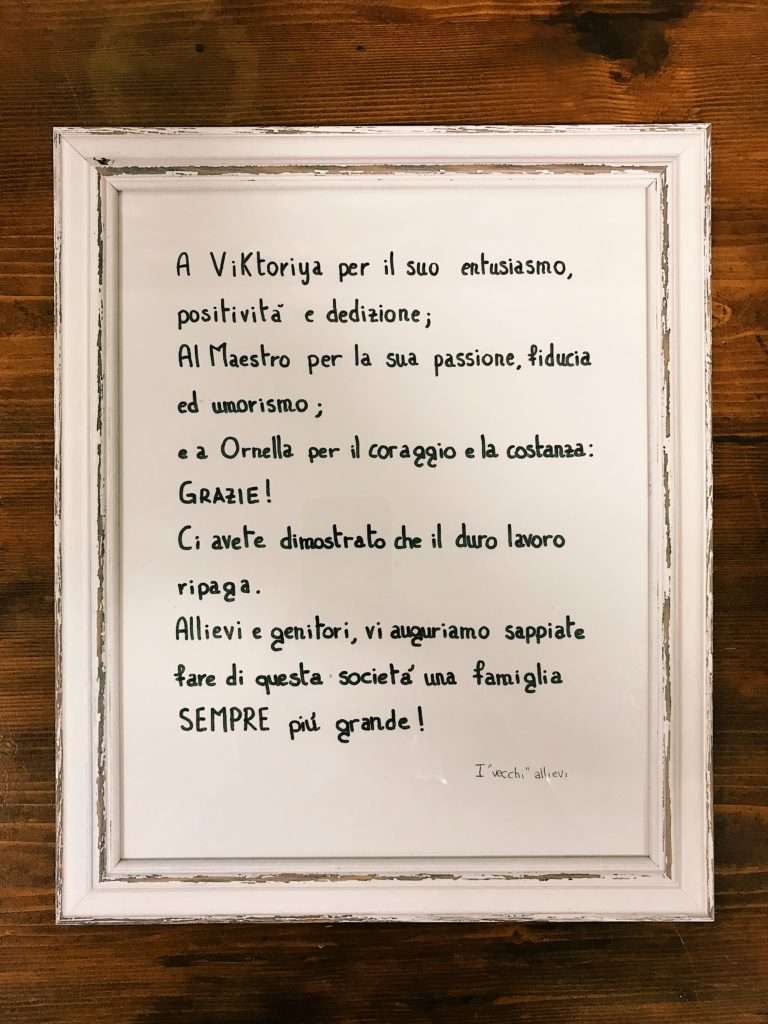 A Viktoriya per il suo entusiasmo,
positivitá e dedizione;
Al Maestro per la sua passione, fiducia
ed umorismo;
e a Ornella per il coraggio e la costanza:
GRAZIE!
Ci avete dimostrato che il duro lavoro
ripaga.
Allievi e genitori, vi auguriamo sappiate
fare di questa societá una famiglia
SEMPRE piú grande!
I "vecchi" allievi